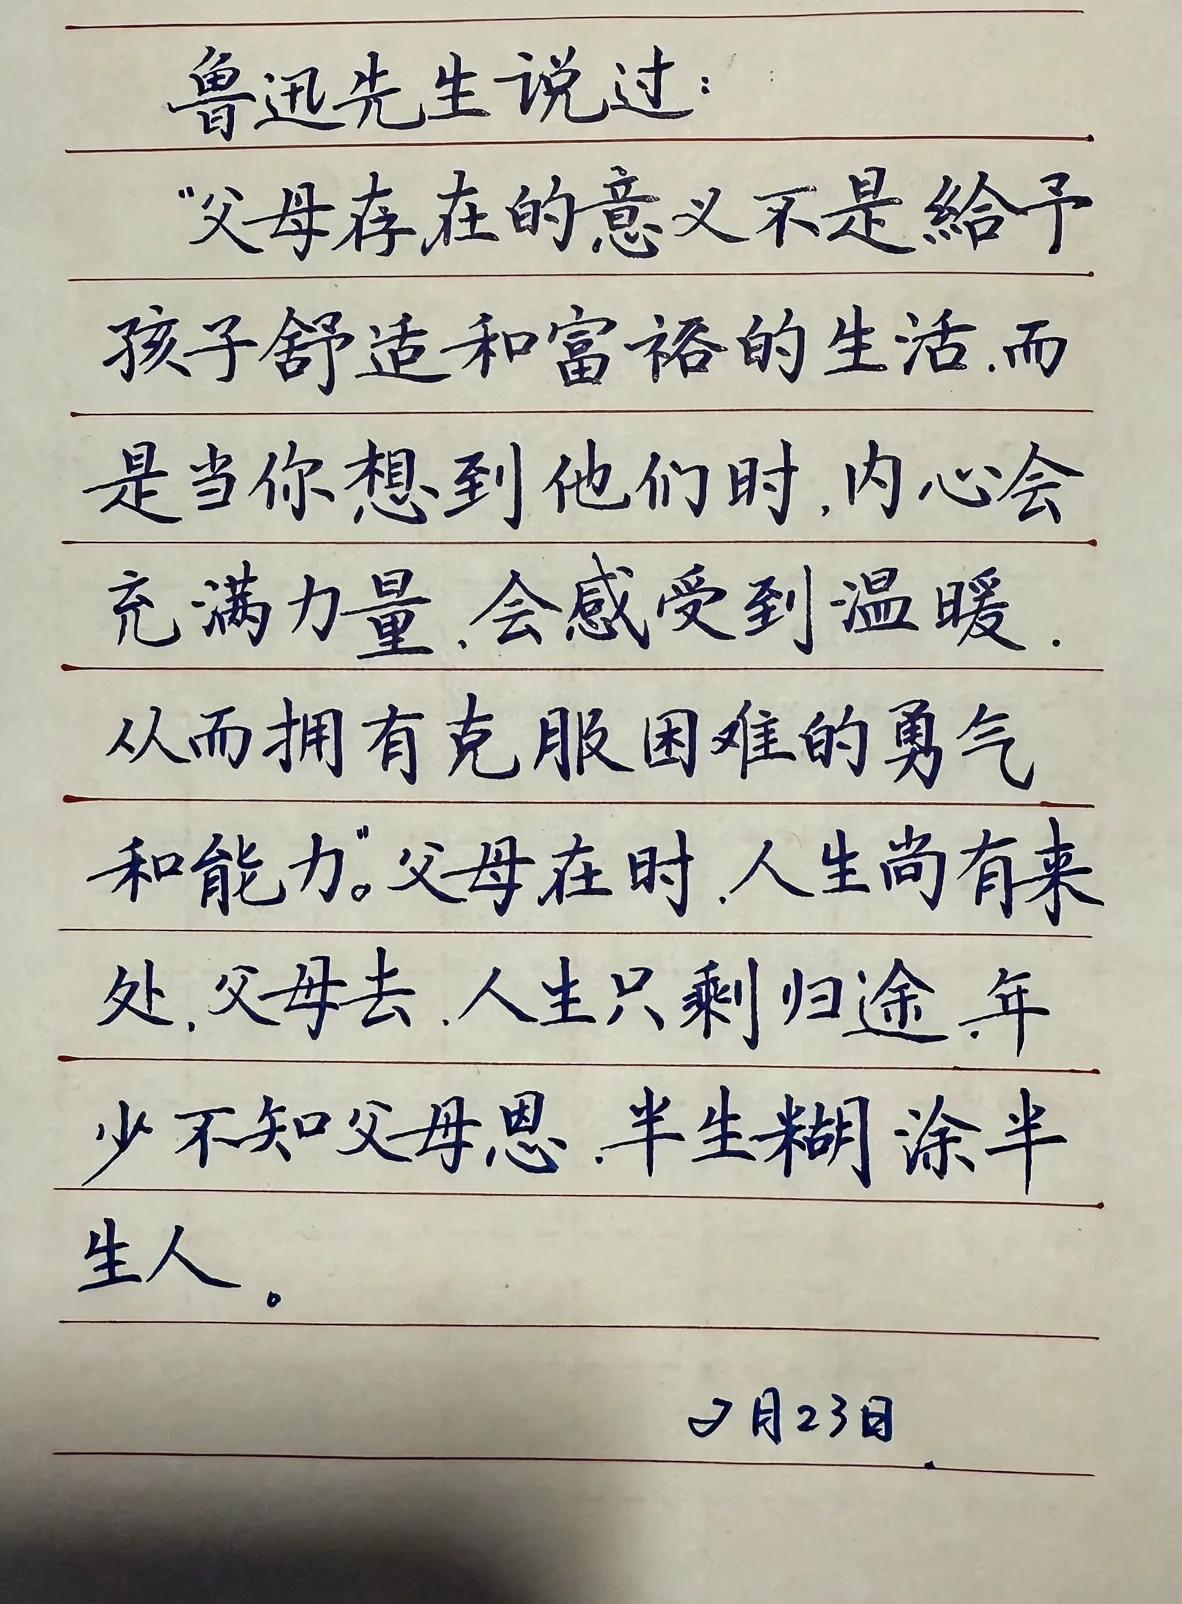 鲁迅先生说过：
“父母存在的意义不是給予
孩子舒适和富裕的生活.而
是当你想到他们时,内心会
充满力量、会感受到温暖.
从而拥有克服困难的勇气
和能力”。父母在时,人生尚有来
处,父母去,人生只剩归途、年
少不知父母恩、半生糊涂半
生人。
月23日